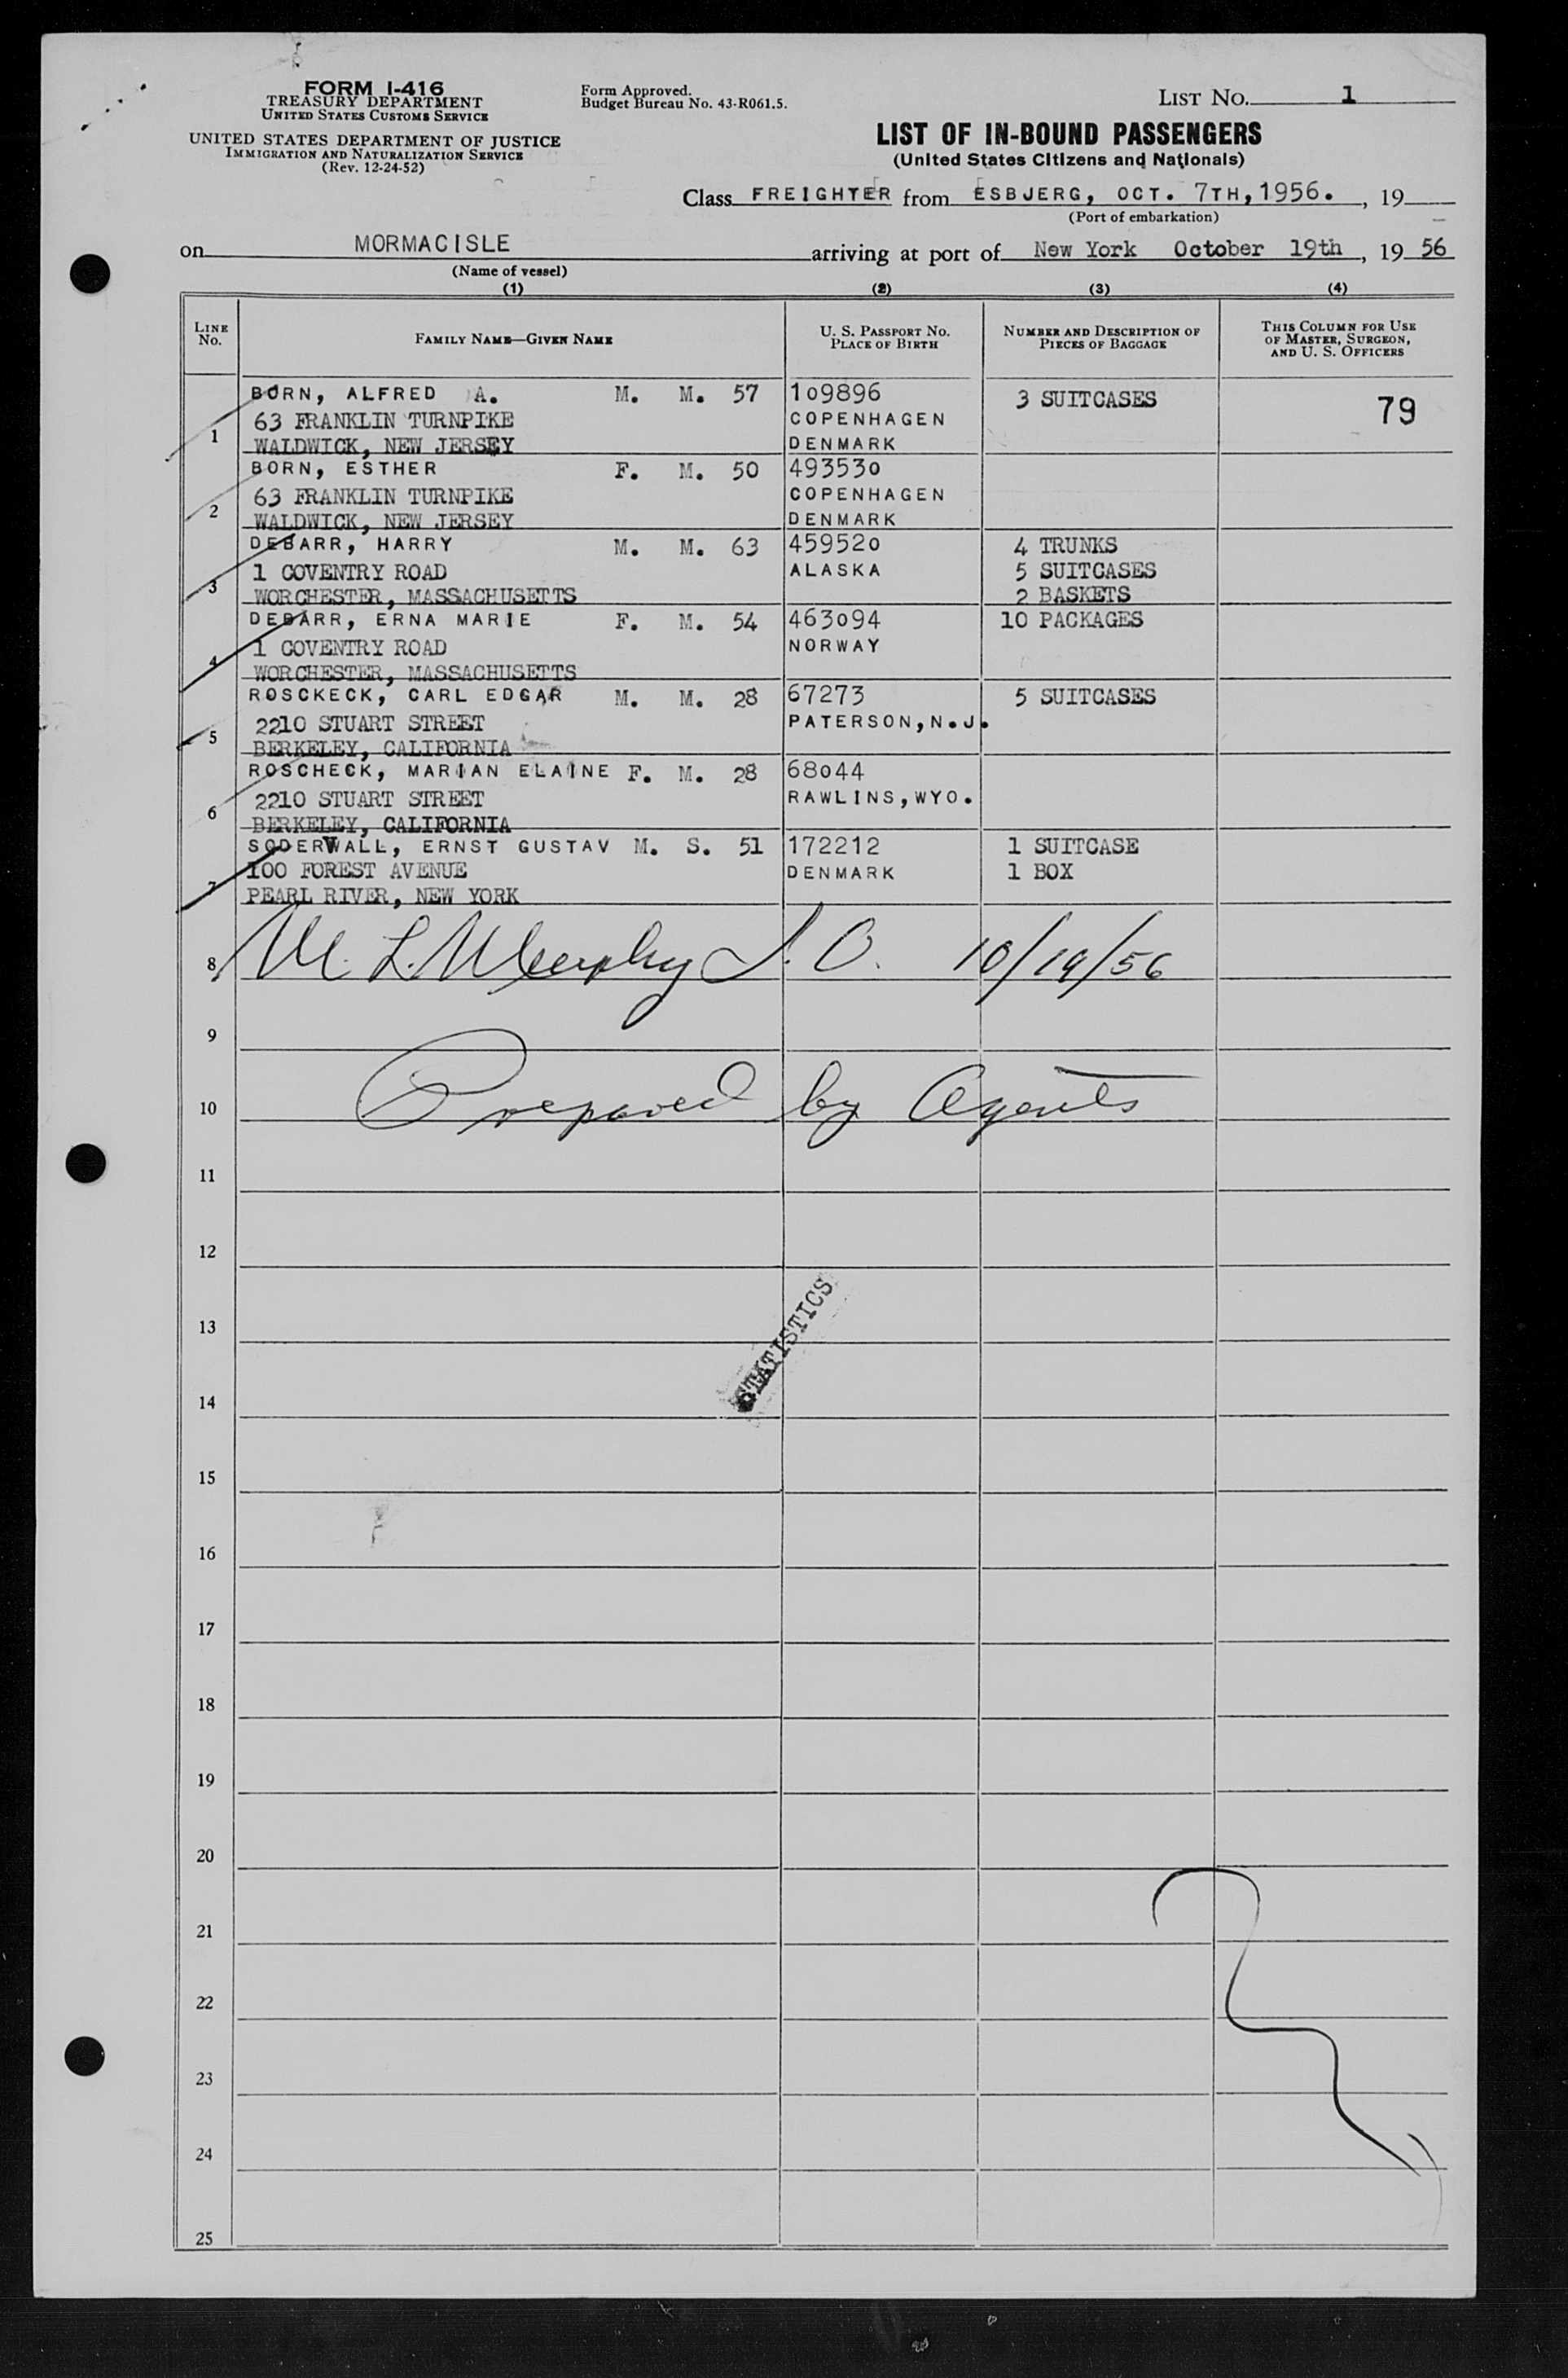 FORM I-416
TREASURY DEPARTMENT
UNITED STATES CUSTOMS SERVICE
UNITED STATES DEPARTMENT OF JUSTICE
IMMIGRATION AND NATURALIZATION SERVICE
(Rev. 12-24-52)
Form Approved.
Budget Bureau No. 43-R061.5.
LIST NO. 1
LIST OF IN-BOUND PASSENGERS
(United States Citizens and Nationals)
Class FREIGHTER from ESBJERG, OCT. 7TH, 1956. , 19
(Port of embarkation)
on MORMACISLE arriving at port of New York October 19th , 19 56
(Name of vessel)
(1) (2) (3) (4)
LINE NO.
FAMILY NAME—GIVEN NAME
U. S. PASSPORT NO.
PLACE OF BIRTH
NUMBER AND DESCRIPTION OF
PIECES OF BAGGAGE
THIS COLUMN FOR USE
OF MASTER, SURGEON,
AND U. S. OFFICERS
BORN, ALFRED A. M. M. 57 109896 3 SUITCASES 79
1 63 FRANKLIN TURNPIKE COPENHAGEN
WALDWICK, NEW JERSEY DENMARK
BORN, ESTHER F. M. 50 493530
2 63 FRANKLIN TURNPIKE COPENHAGEN
WALDWICK, NEW JERSEY DENMARK
DEBARR, HARRY M. M. 63 459520 4 TRUNKS
3 1 COVENTRY ROAD ALASKA 5 SUITCASES
WORCHESTER, MASSACHUSETTS 2 BASKETS
DEBARR, ERNA MARIE F. M. 54 463094 10 PACKAGES
4 1 COVENTRY ROAD NORWAY
WORCHESTER, MASSACHUSETTS
ROSCKECK, CARL EDGAR M. M. 28 67273 5 SUITCASES
5 2210 STUART STREET PATERSON, N.J.
BERKELEY, CALIFORNIA
ROSCHECK, MARIAN ELAINE F. M. 28 68044
6 2210 STUART STREET RAWLINS, WYO.
BERKELEY, CALIFORNIA
SODERWALL, ERNST GUSTAV M. S. 51 172212 1 SUITCASE
7 100 FOREST AVENUE DENMARK 1 BOX
PEARL RIVER, NEW YORK
8 M. L. Murphy I. O. 10/19/56
9
10 Prepared by Agents
11
12
13
STATISTICS
14
15
16
17
18
19
20
21
22
23
24
25